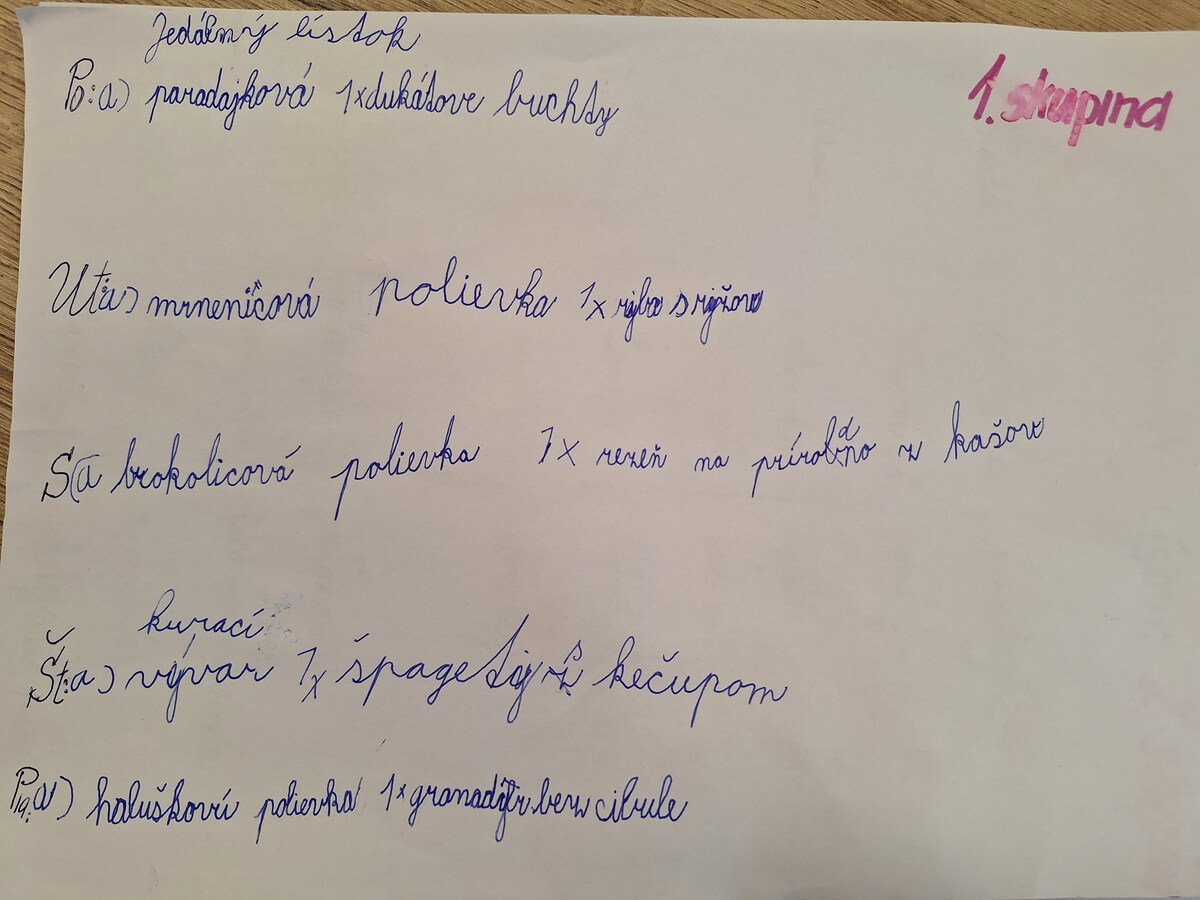 Jedálny lístok
1. skupina
Po:a) paradajková 1x dukátove buchty
Ut:a) mrneničová polievka 1x ryba s ryžov
S(a brokolicová polievka 1x rezeň na prírodno z kašov
kurací
Št:a) vývar 1x špagety s kečupom
Pia:a) haluškovı polievka 1x granadýr bez cibule